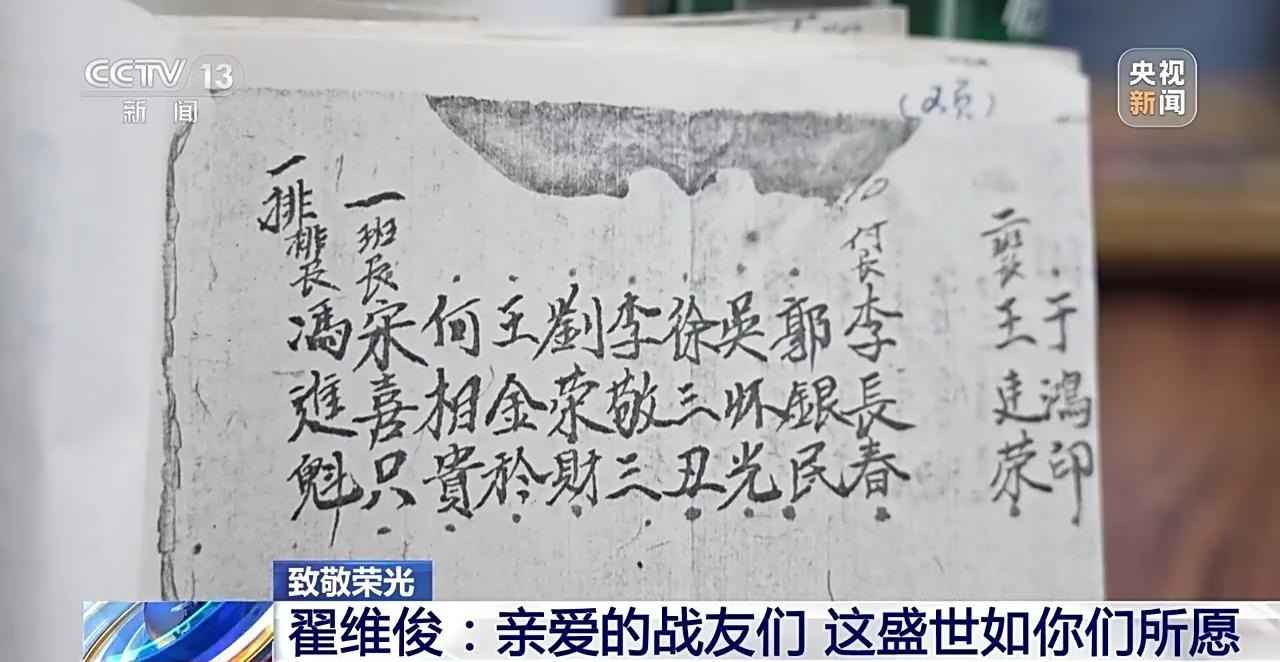 CCTV 13
新闻
央视
新闻
一排排长 馮進魁
一班长 宋喜只
何相貴
王金矜
劉荣財
李敬三
徐三丑
吳怀光
郭銀民
付长 李長春
二班长 王建荣
于鴻印
致敬荣光
翟维俊：亲爱的战友们 这盛世如你们所愿